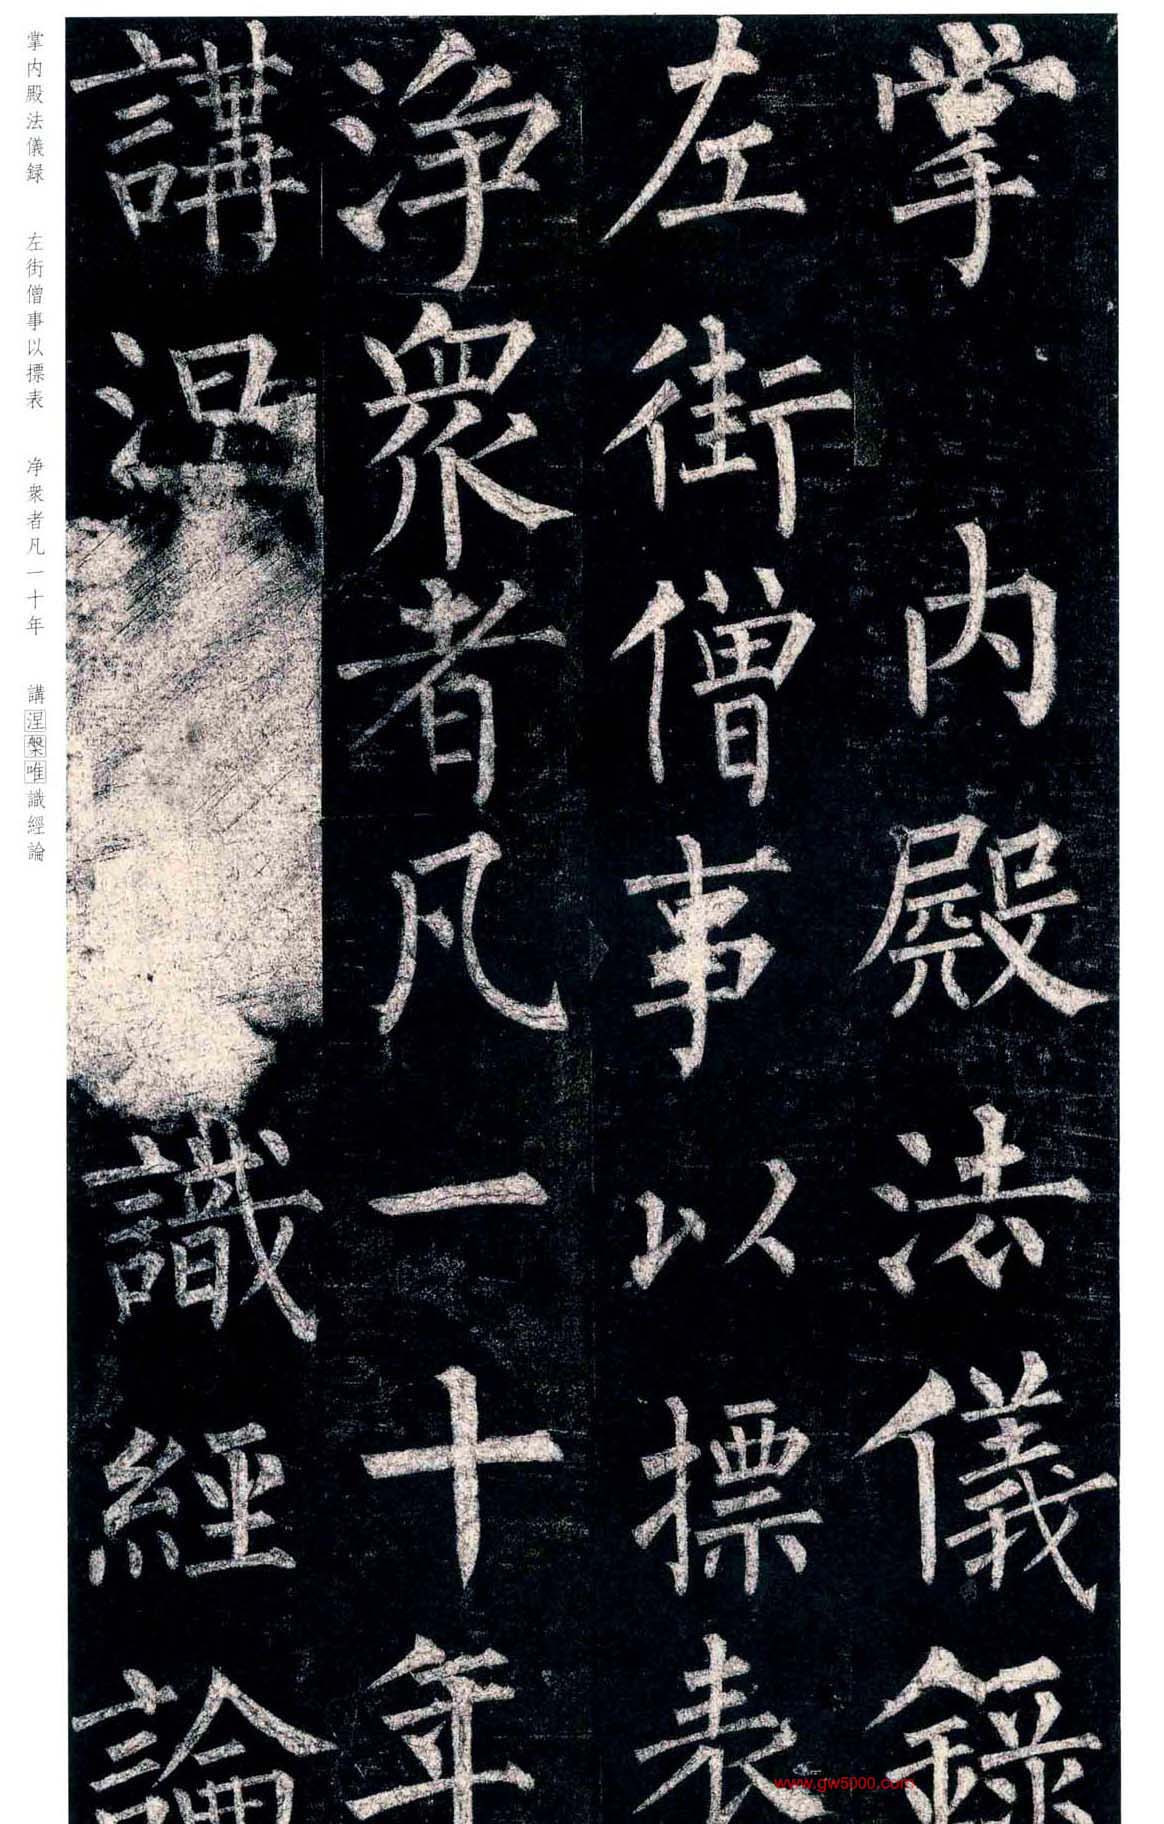 掌内殿法儀録
左街僧事以摽表
淨衆者凡一十年
講涅識經論
掌内殿法儀録 左街僧事以摽表 净衆者凡一十年 講涅槃唯識經論
www.gw5000.com